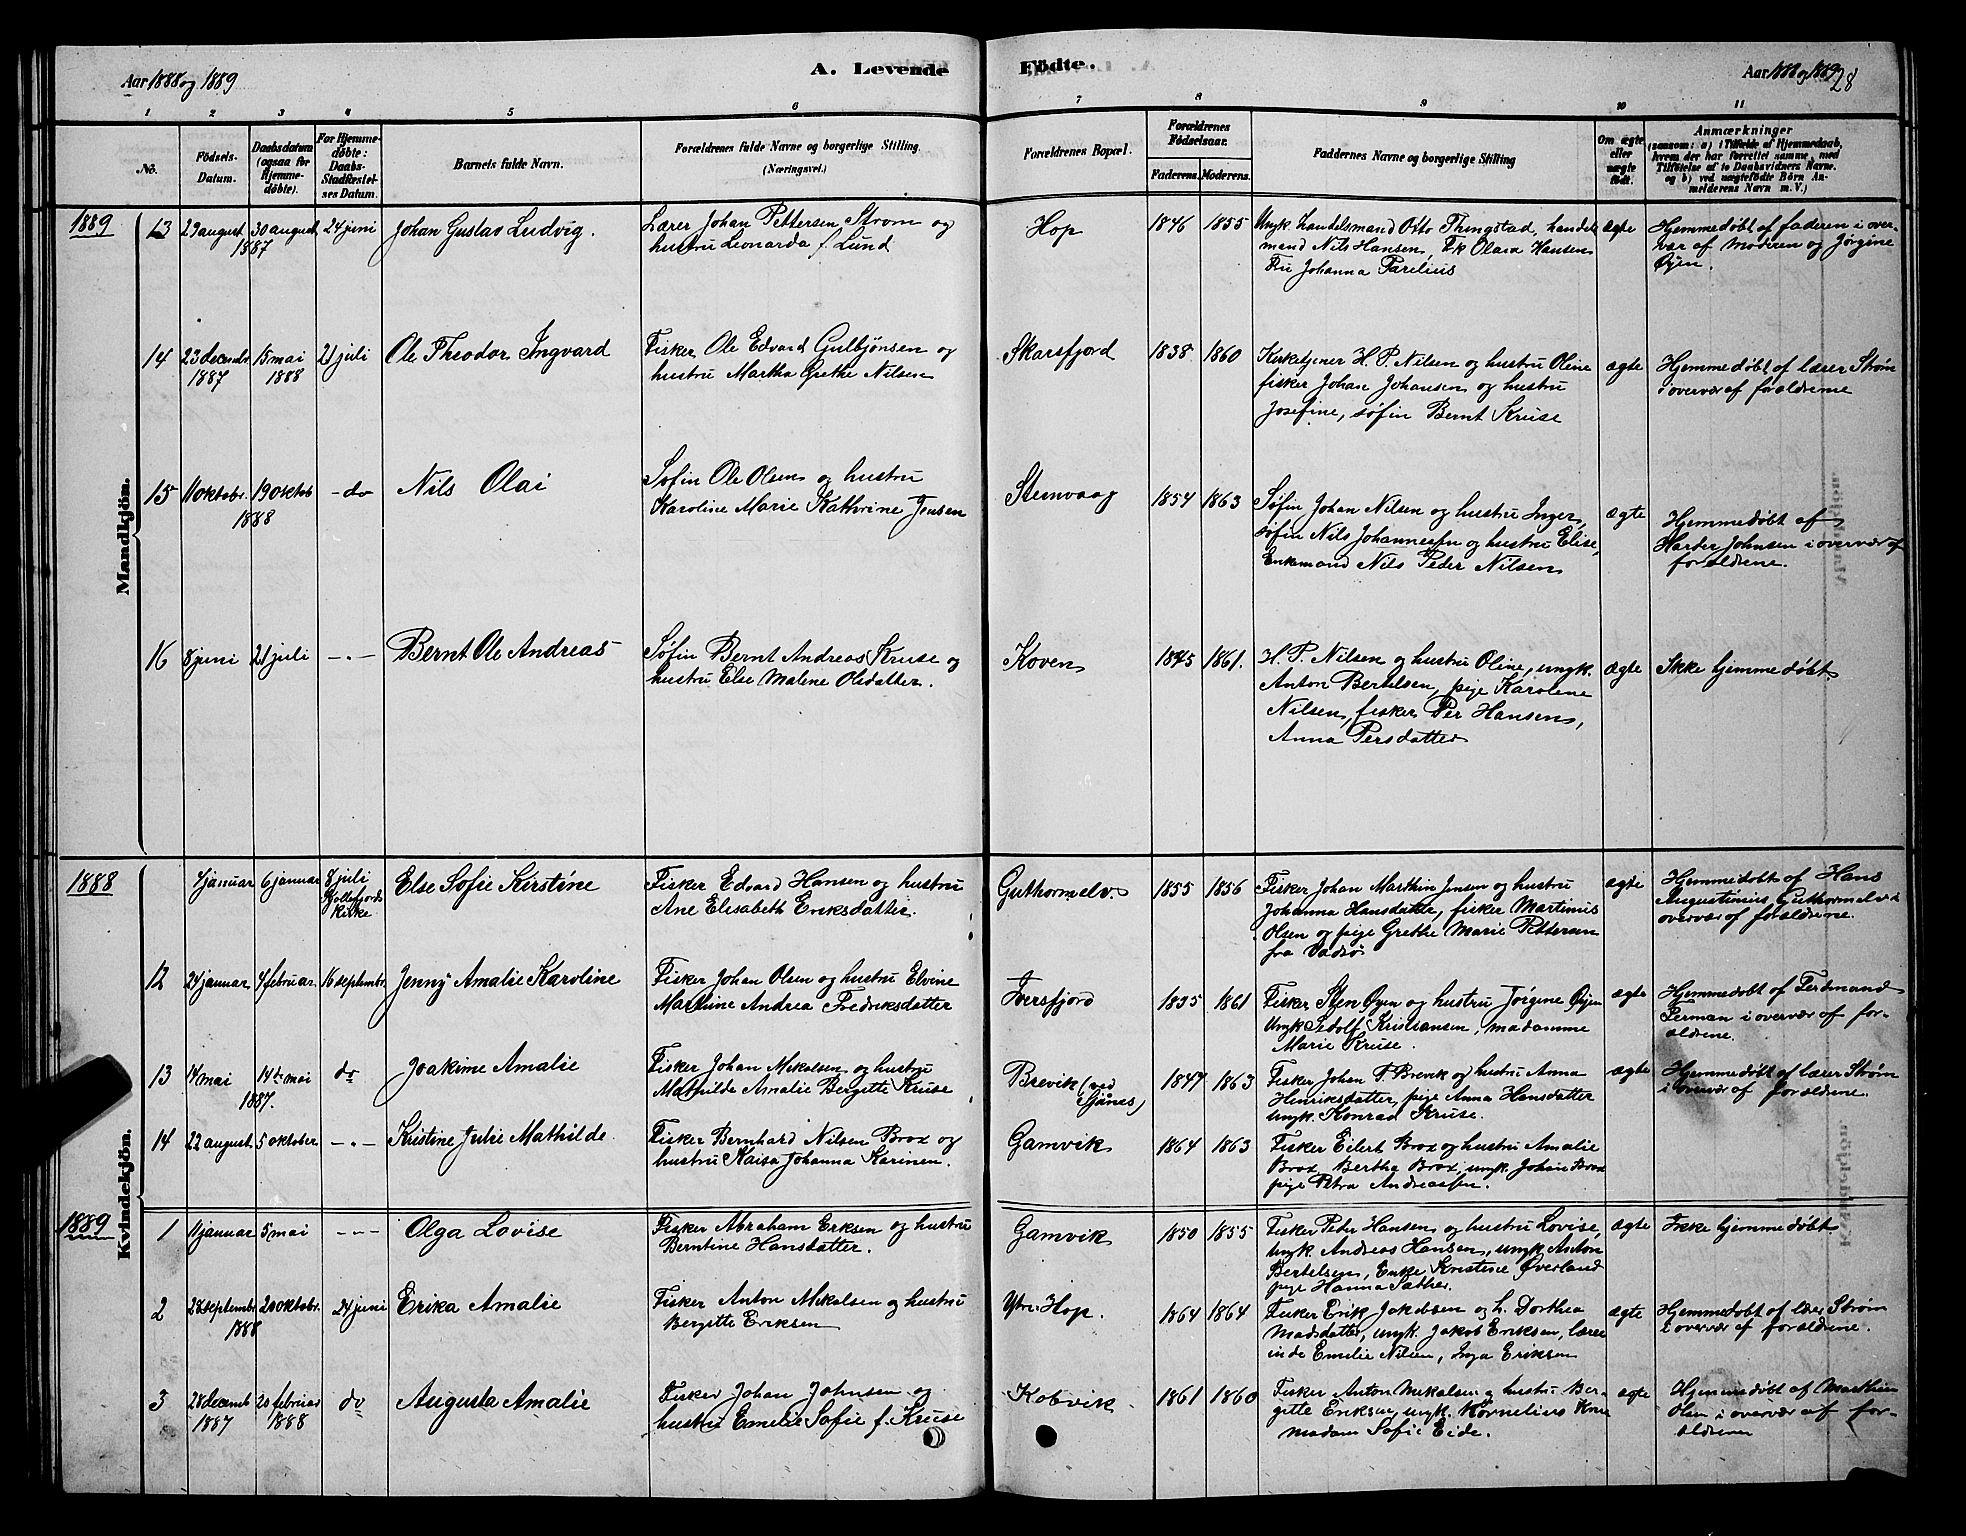 Aar 1888 og 1889
A. Levende Födte.
Aar 1888 og 1889
28
1 2 3 4 5 6 7 8 9 10 11
No.
Födsels-Datum.
Daabsdatum (ogsaa for Hjemme-döbte).
For Hjemme-döbte: Daabs-Stadfæstel-ses Datum.
Barnets fulde Navn.
Forældrenes fulde Navne og borgerlige Stilling. (Næringsvei.)
Forældrenes Bopæl.
Forældrenes Födselsaar.
Faderens. Moderens.
Faddernes Navne og borgerlige Stilling
Om ægte eller uægte födt.
Anmærkninger
(saasom: a) i Tilfælde af Hjemmedaab, hvem der har forrettet samme, med Tilföielse af to Daabsvidners Navne, og b) ved uægtefödte Börn An-melderens Navn m. V.)
Mandkjön.
1889
13 29 august 30 august 24 juni Johan Gustav Ludvig. Lærer Johan Pettersen Strøm og
1887 hustru Leonarda f. Lund
Hop 1846 1855 Ungk. handelsmand Otto Thingstad, handels
mand Nils Hansen, Fk Olara Hansen
Fru Johanna Parelius
ægte Hjemmedøbt af faderen i over-
vær af moderen og Jørgine
Øyen.
14 23 decembr 15 mai 21 juli Ole Theodor Ingvard Fisker Ole Edvard Gulbjönsen og
1887 1888 hustru Martha Grethe Nilsen
Skarsfjord 1838 1860 Kirketjener H. P. Nilsen og hustru Oline
fisker Johan Johansen og hustru
Josefine, søfin Bernt Kruse
ægte Hjemmedøbt af lærer Strøm
i overvær af forældrene
15 11 oktobr. 19 oktob - do Nils Olai Søfin Ole Olsen og hustru
1888 Karoline Marie Kathrine Jensen
Stenvaag 1854 1863 Søfin Johan Nilsen og hustru Inger,
søfin Nils Johannessen og hustru Elise,
Enkmand Nils Peder Nilsen
ægte Hjemmedøbt af
Harder Johnsen i overvær af
forældrene.
16 8 juni 21 juli - " - Bernt Ole Andreas Søfin Bernt Andreas Kruse og
hustru Else Malene Olsdatter.
Koven 1845 1861. H. P. Nilsen og hustru Oline, ungk.
Anton Bertelsen, pige Karolene
Nilsen, fisker Per Hansen,
Anna Persdatter
ægte Ikke hjemmedøbt
Kvindekjön.
1888
4 januar 6 januar 8 juli Else Sofie Kirstine Fisker Edvard Hansen og hustru
Kjøllefjords Kirke Ane Elisabeth Eriksdatter.
Guthormelv. 1855 1856 Fisker Johan Marthin Jensen og hustru
Johanna Hansdatter, fisker Martinus
Olsen og pige Grethe Marie Pettersen
fra Vadsø
ægte Hjemmedøbt af Hans
Augustinius Guthormelv i
overvær af forældrene.
12 24 januar 4 februar 16 septembr. Jenny Amalie Karoline Fisker Johan Olsen og hustru Elvine
Marthine Andrea Fredriksdatter
Iversfjord 1835 1861 Fisker Sten Øyen og hustru Jörgine Øyen
Ungk Sedolf Kristiansen, madamme
Marie Kruse.
ægte Hjemmedøbt af Ferdinand
German i overvær af for-
ældrene.
13 14 mai 14de mai do Joakime Amalie Fisker Johan Mikalsen og hustru
1887. Mathilde Amalie Bergitte Kruse
Brevik (ved Sjånes) 1847 1863 Fisker Johan P. Brenk og hustru Anna
Henriksdatter, pige Anna Hansdatter
ungk. Konrad Kruse.
ægte Hjemmedøbt af lærer Strøm
i overvær af forældrene.
14 22 august. 5 oktober - " - Kristine Julie Mathilde. Fisker Bernhard Nilsen Brox og
hustru Kaisa Johanna Karinen.
Gamvik 1864 1863 Fisker Eilert Brox og hustru Amalie
Brox, Bertha Brox, ungk. Johan Brox
pige Petra Andreassen.
1889
1 11 januar 5 mai - - - Olga Lovise Fisker Abraham Eriksen og hustru
Berntine Hansdatter.
Gamvik 1850 1855 Fisker Peder Hansen og hustru Lovise,
ungk. Andreas Hansen, ungk. Anton
Bertelsen, Enke Kristine Øverland
pige Hanna Sather.
ægte Ikke hjemmedøbt.
2 28 septembr 20 oktobr. 24 juni Erika Amalie Fisker Anton Mikalsen og hustru
1888 Bergitte Eriksen
Ytre-Hop. 1864 1864 Fisker Erik Jakobsen og h. Dorthea
Madsdatter, ungk. Jakob Eriksen, lærer
inde Emelie Nilsen, Inga Eriksen
ægte Hjemmedøbt af lærer Strøm
i overvær af forældrene.
3 28 decemb 20 februar do Augusta Amalie Fisker Johan Johnsen og
1887 1888 hustru Emelie Sofie f. Kruse
Kobvik. 1861 1860 Fisker Anton Mikalsen og hustru Ber-
gitte Eriksen, ungk. Kornelius Kruse
Madam Sofie Eide.
ægte Hjemmedøbt af Marthin
Olsen i overvær af for-
ældrene